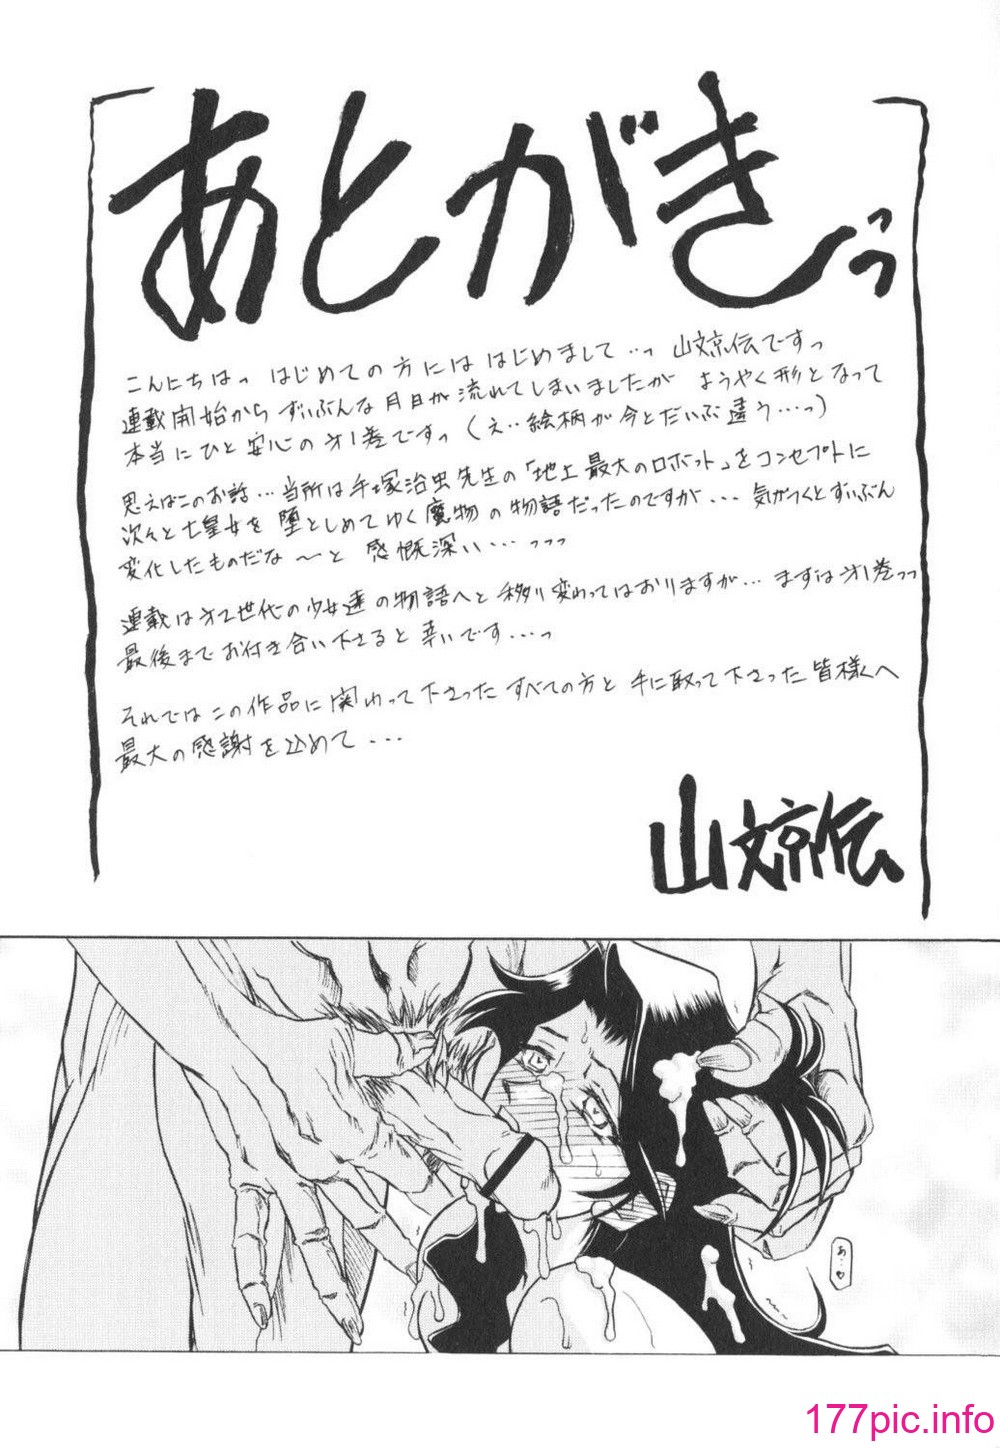 あとがきっ
こんにちはっ はじめての方には はじめまして‥っ 山文京伝ですっ
連載開始から ずいぶんな月日が流れてしまいましたが ようやく形となって
本当にひと安心の才1巻ですっ(え‥絵柄が今とだいぶ違う…っ)
思えばこのお話…当所は手塚治虫先生の「地上最大のロボット」をコンセプトに
次々と七皇女を堕としめてゆく魔物の物語だったのですが... 気がつくとずいぶん
変化したものだな〜と 感慨深い...っっっ
連載は才2世代の少女達の物語へと移り変わってはおりますが... まずは才1巻っっ
最後までお付き合い下さると幸いです...っ
それでは この作品に関わって下さった すべての方と 手に取って下さった皆様へ
最大の感謝を込めて...
山文京伝
あ…♡
177pic.info